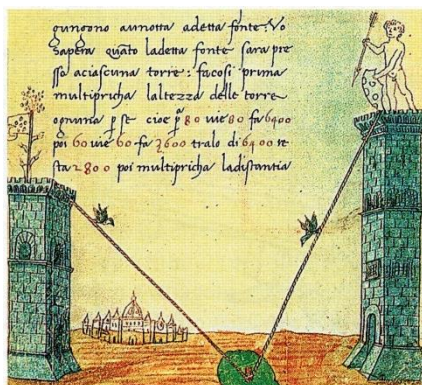 gungono aunotta adetta fonte: Vo
sapera quāto ladetta fonte sara pre
sso aciascuna torre: facosi prima
multipricha laltezza delle torre
ognuna ꝑ se cioe ꝑ 80 uie 80 fa 6400
poi 60 uie 60 fa 3600 tralo di 6400 re
sta 2800 poi multipricha ladistantia